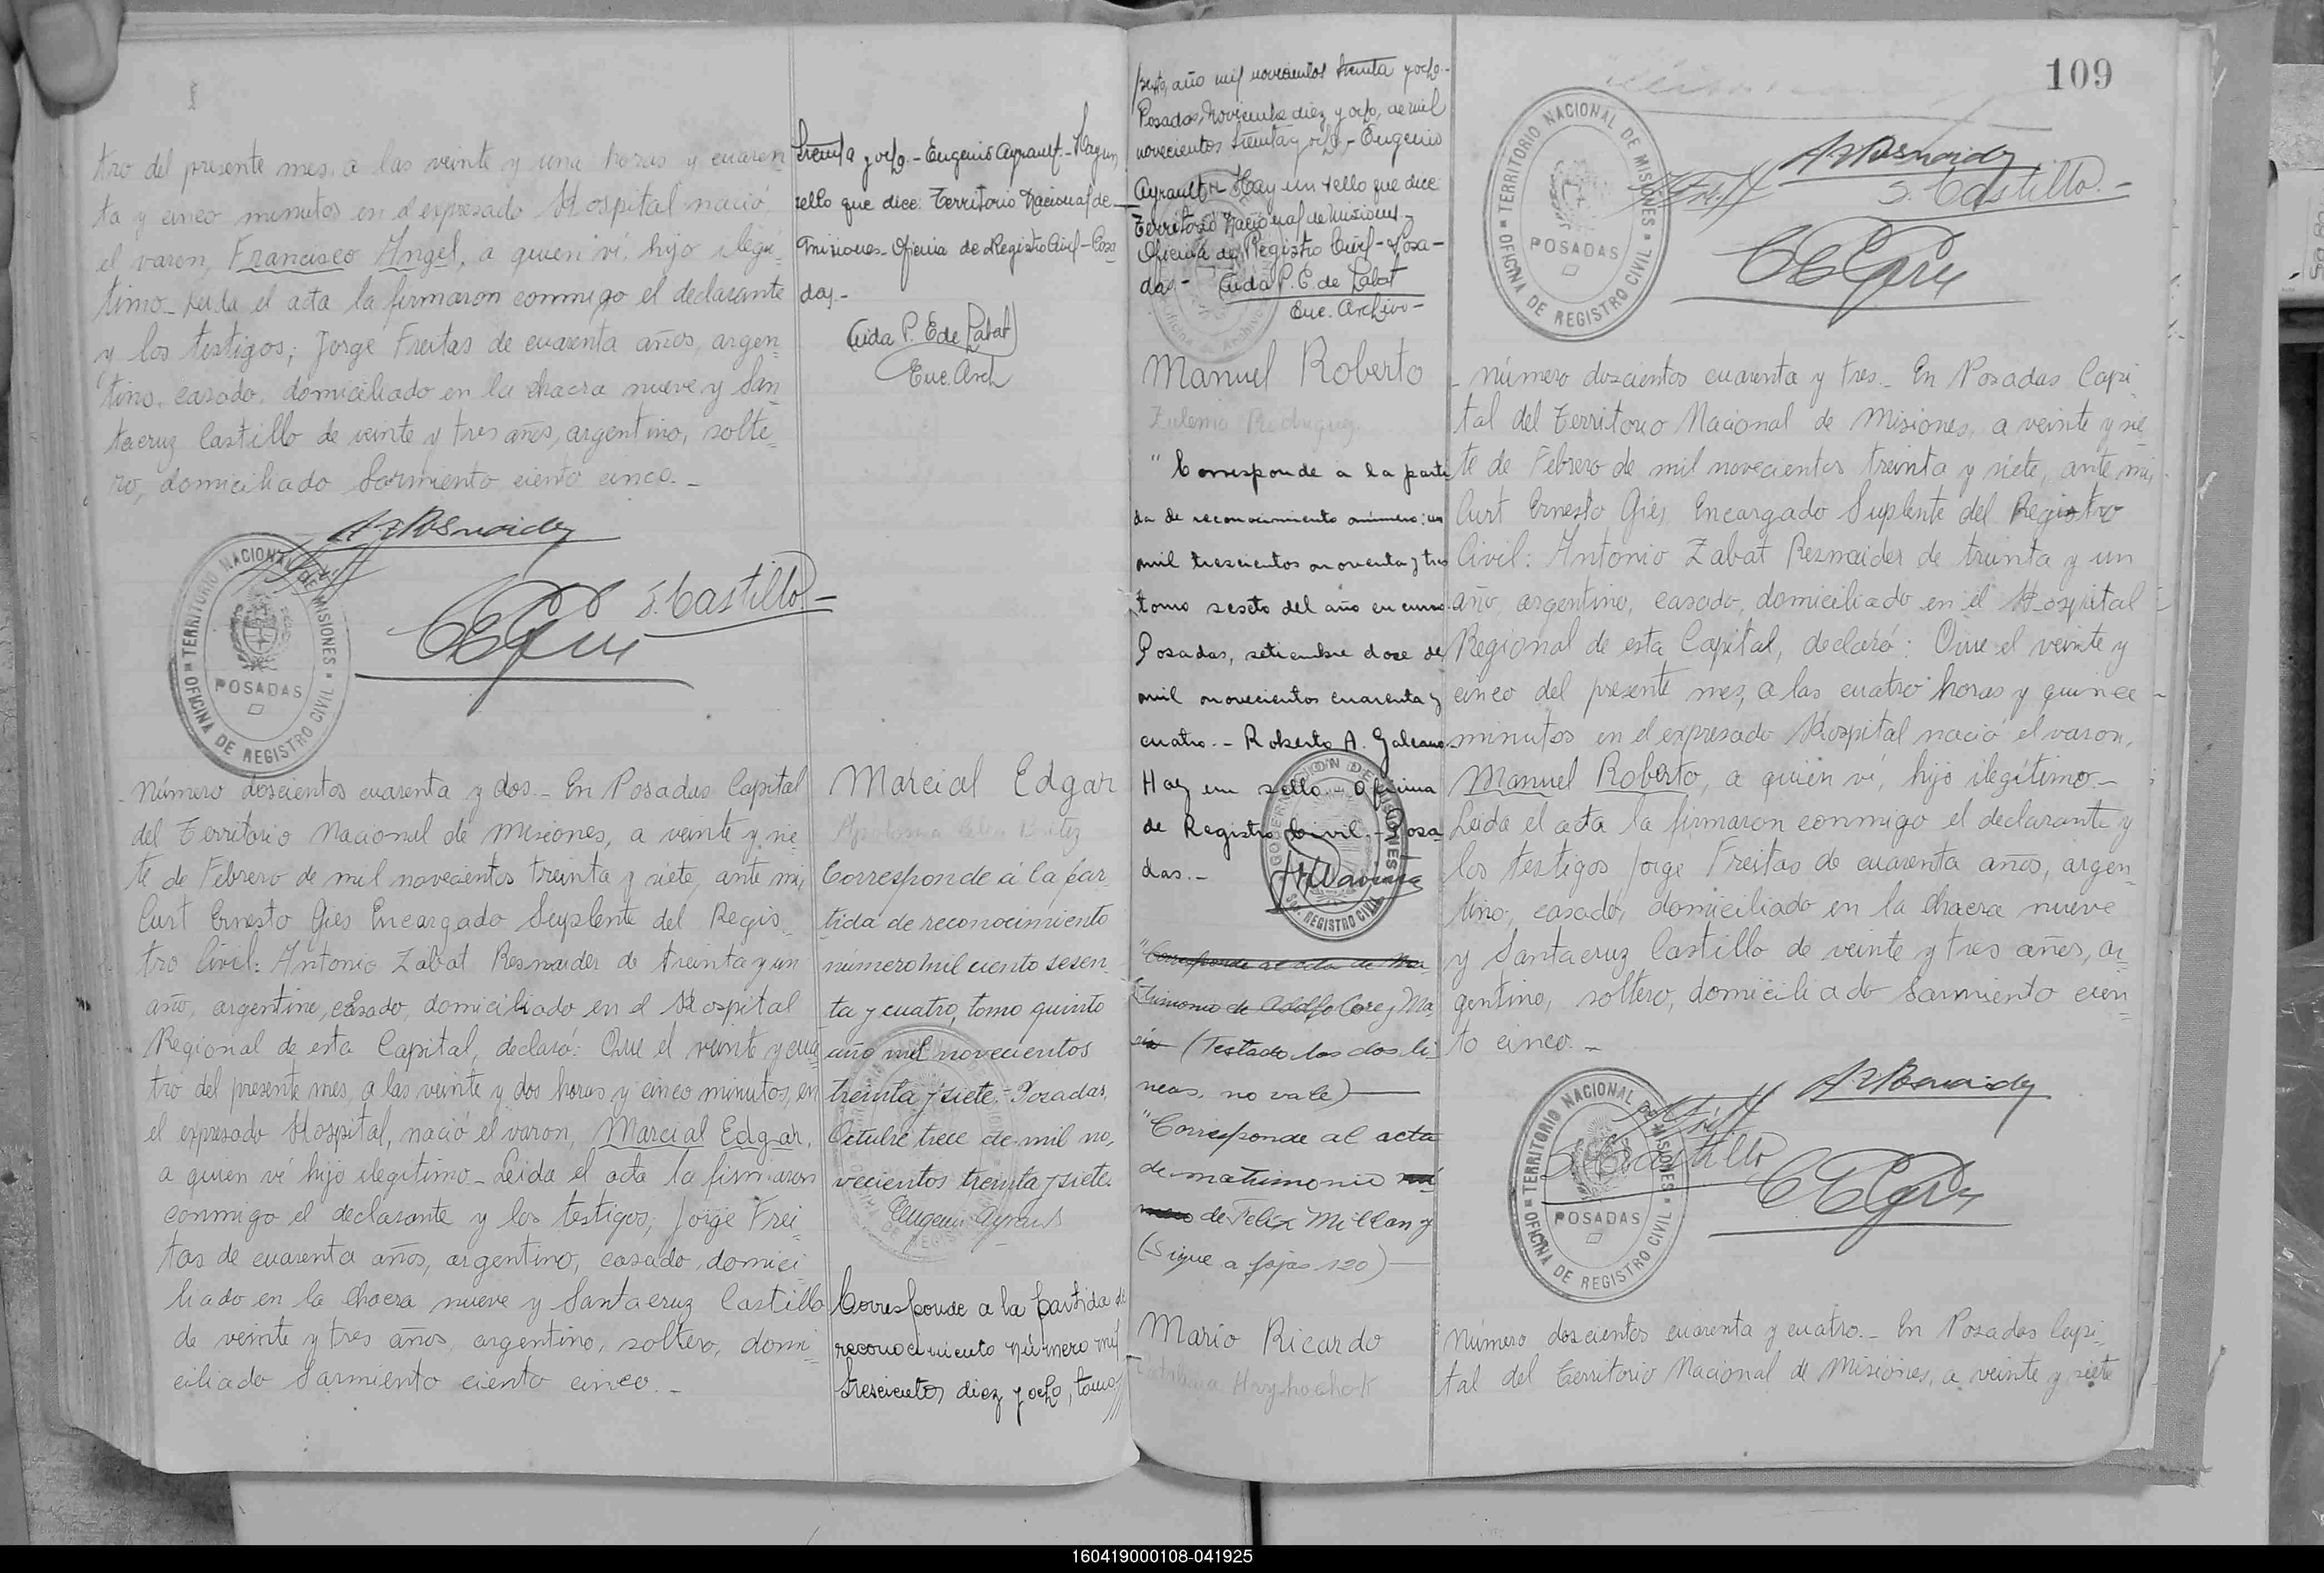 tro del presente mes, a las veinte y una horas y cuaren
ta y cinco minutos en el expresado Hospital nació
el varon, Francisco Angel, a quien vi, hijo ilegí-
timo_ Leida el acta la firmaron conmigo el declarante
y los testigos; Jorge Freitas de cuarenta años, argen-
tino, casado, domiciliado en la chacra nueve y San-
tacruz Castillo de veinte y tres años, argentino, solte-
ro, domiciliado Sarmiento ciento cinco._
S. Castillo
TERRITORIO NACIONAL DE MISIONES
POSADAS
OFICINA DE REGISTRO CIVIL
Número doscientos cuarenta y dos._ En Posadas Capital
del Territorio Nacional de Misiones, a veinte y sie-
te de Febrero de mil novecientos treinta y siete, ante mi,
Curt Ernesto Gies Encargado Suplente del Regis-
tro Civil: Antonio Zabat Resnaider de treinta y un
año, argentino, casado, domiciliado en el Hospital
Regional de esta Capital, declaró: Que el veinte y cua
tro del presente mes, a las veinte y dos horas y cinco minutos, en
el expresado Hospital, nació el varon, Marcial Edgar,
a quien vi hijo ilegítimo_ Leida el acta la firmaron
conmigo el declarante y los testigos, Jorge Frei-
tas de cuarenta años, argentino, casado, domici-
liado en la chacra nueve y Santacruz Castillo
de veinte y tres años, argentino, soltero, domi-
ciliado Sarmiento ciento cinco._
treinta y ocho.- Eugenio Ayrault.- Hay un
sello que dice: Territorio Nacional de
Misiones- Oficina de Registro Civil- Posa
das.-
Aida P. E de Labat
Enc. Arch
Marcial Edgar
Corresponde á la par-
tida de reconocimiento
número mil ciento sesen-
ta y cuatro, tomo quinto
año mil novecientos
treinta y siete.- Posadas,
Octubre trece de mil no-
vecientos treinta y siete.
Eugenio Ayrault
Corresponde a la partida de
reconocimiento número mil
trescientos diez y ocho, tomo
sexto, año mil novecientos treinta y ocho-
Posadas, Noviembre diez y ocho, de mil
novecientos treinta y ocho- Eugenio
Ayrault- Hay un sello que dice:
Territorio Nacional de Misiones-
Oficina de Registro Civil- Posa-
das- Aida P. E. de Labat
Enc. Archivo-
Manuel Roberto
Zulema Rodriguez
"Corresponde a la parti
da de reconocimiento número: un
mil trescientos noventa y tres
tomo sexto del año en curso.
Posadas, setiembre doce de
mil novecientos cuarenta y
cuatro.- Roberto A. Galeano
Hay un sello. Oficina
de Registro Civil.- Posa
das.-
"Corresponde al acta de Ma
trimonio de Adolfo Core y Ma
ria (Testado las dos li-
neas, no vale)
"Corresponde al acta
de matrimonio nú
mero de Felix Millan y
(Sigue a fojas 120)
Mario Ricardo
109
TERRITORIO NACIONAL DE MISIONES
POSADAS
OFICINA DE REGISTRO CIVIL
S. Castillo.-
_ número doscientos cuarenta y tres._ En Posadas Capi-
tal del Territorio Nacional de Misiones, a veinte y sie-
te de Febrero de mil novecientos treinta y siete, ante mi,
Curt Ernesto Gies, Encargado Suplente del Registro
Civil: Antonio Zabat Resnaider de treinta y un
año, argentino, casado, domiciliado en el Hospital
Regional de esta Capital, declaró: Que el veinte y
cinco del presente mes, a las cuatro horas y quince
minutos en el expresado Hospital nació el varon,
Manuel Roberto, a quien vi, hijo ilegítimo._
Leida el acta la firmaron conmigo el declarante y
los testigos Jorge Freitas de cuarenta años, argen-
tino, casado, domiciliado en la chacra nueve
y Santacruz Castillo de veinte y tres años, ar-
gentino, soltero, domiciliado Sarmiento cien-
to cinco._
S. Castillo
TERRITORIO NACIONAL DE MISIONES
POSADAS
OFICINA DE REGISTRO CIVIL
Número doscientos cuarenta y cuatro._ En Posadas Capi-
tal del Territorio Nacional de Misiones, a veinte y siete
160419000108-041925